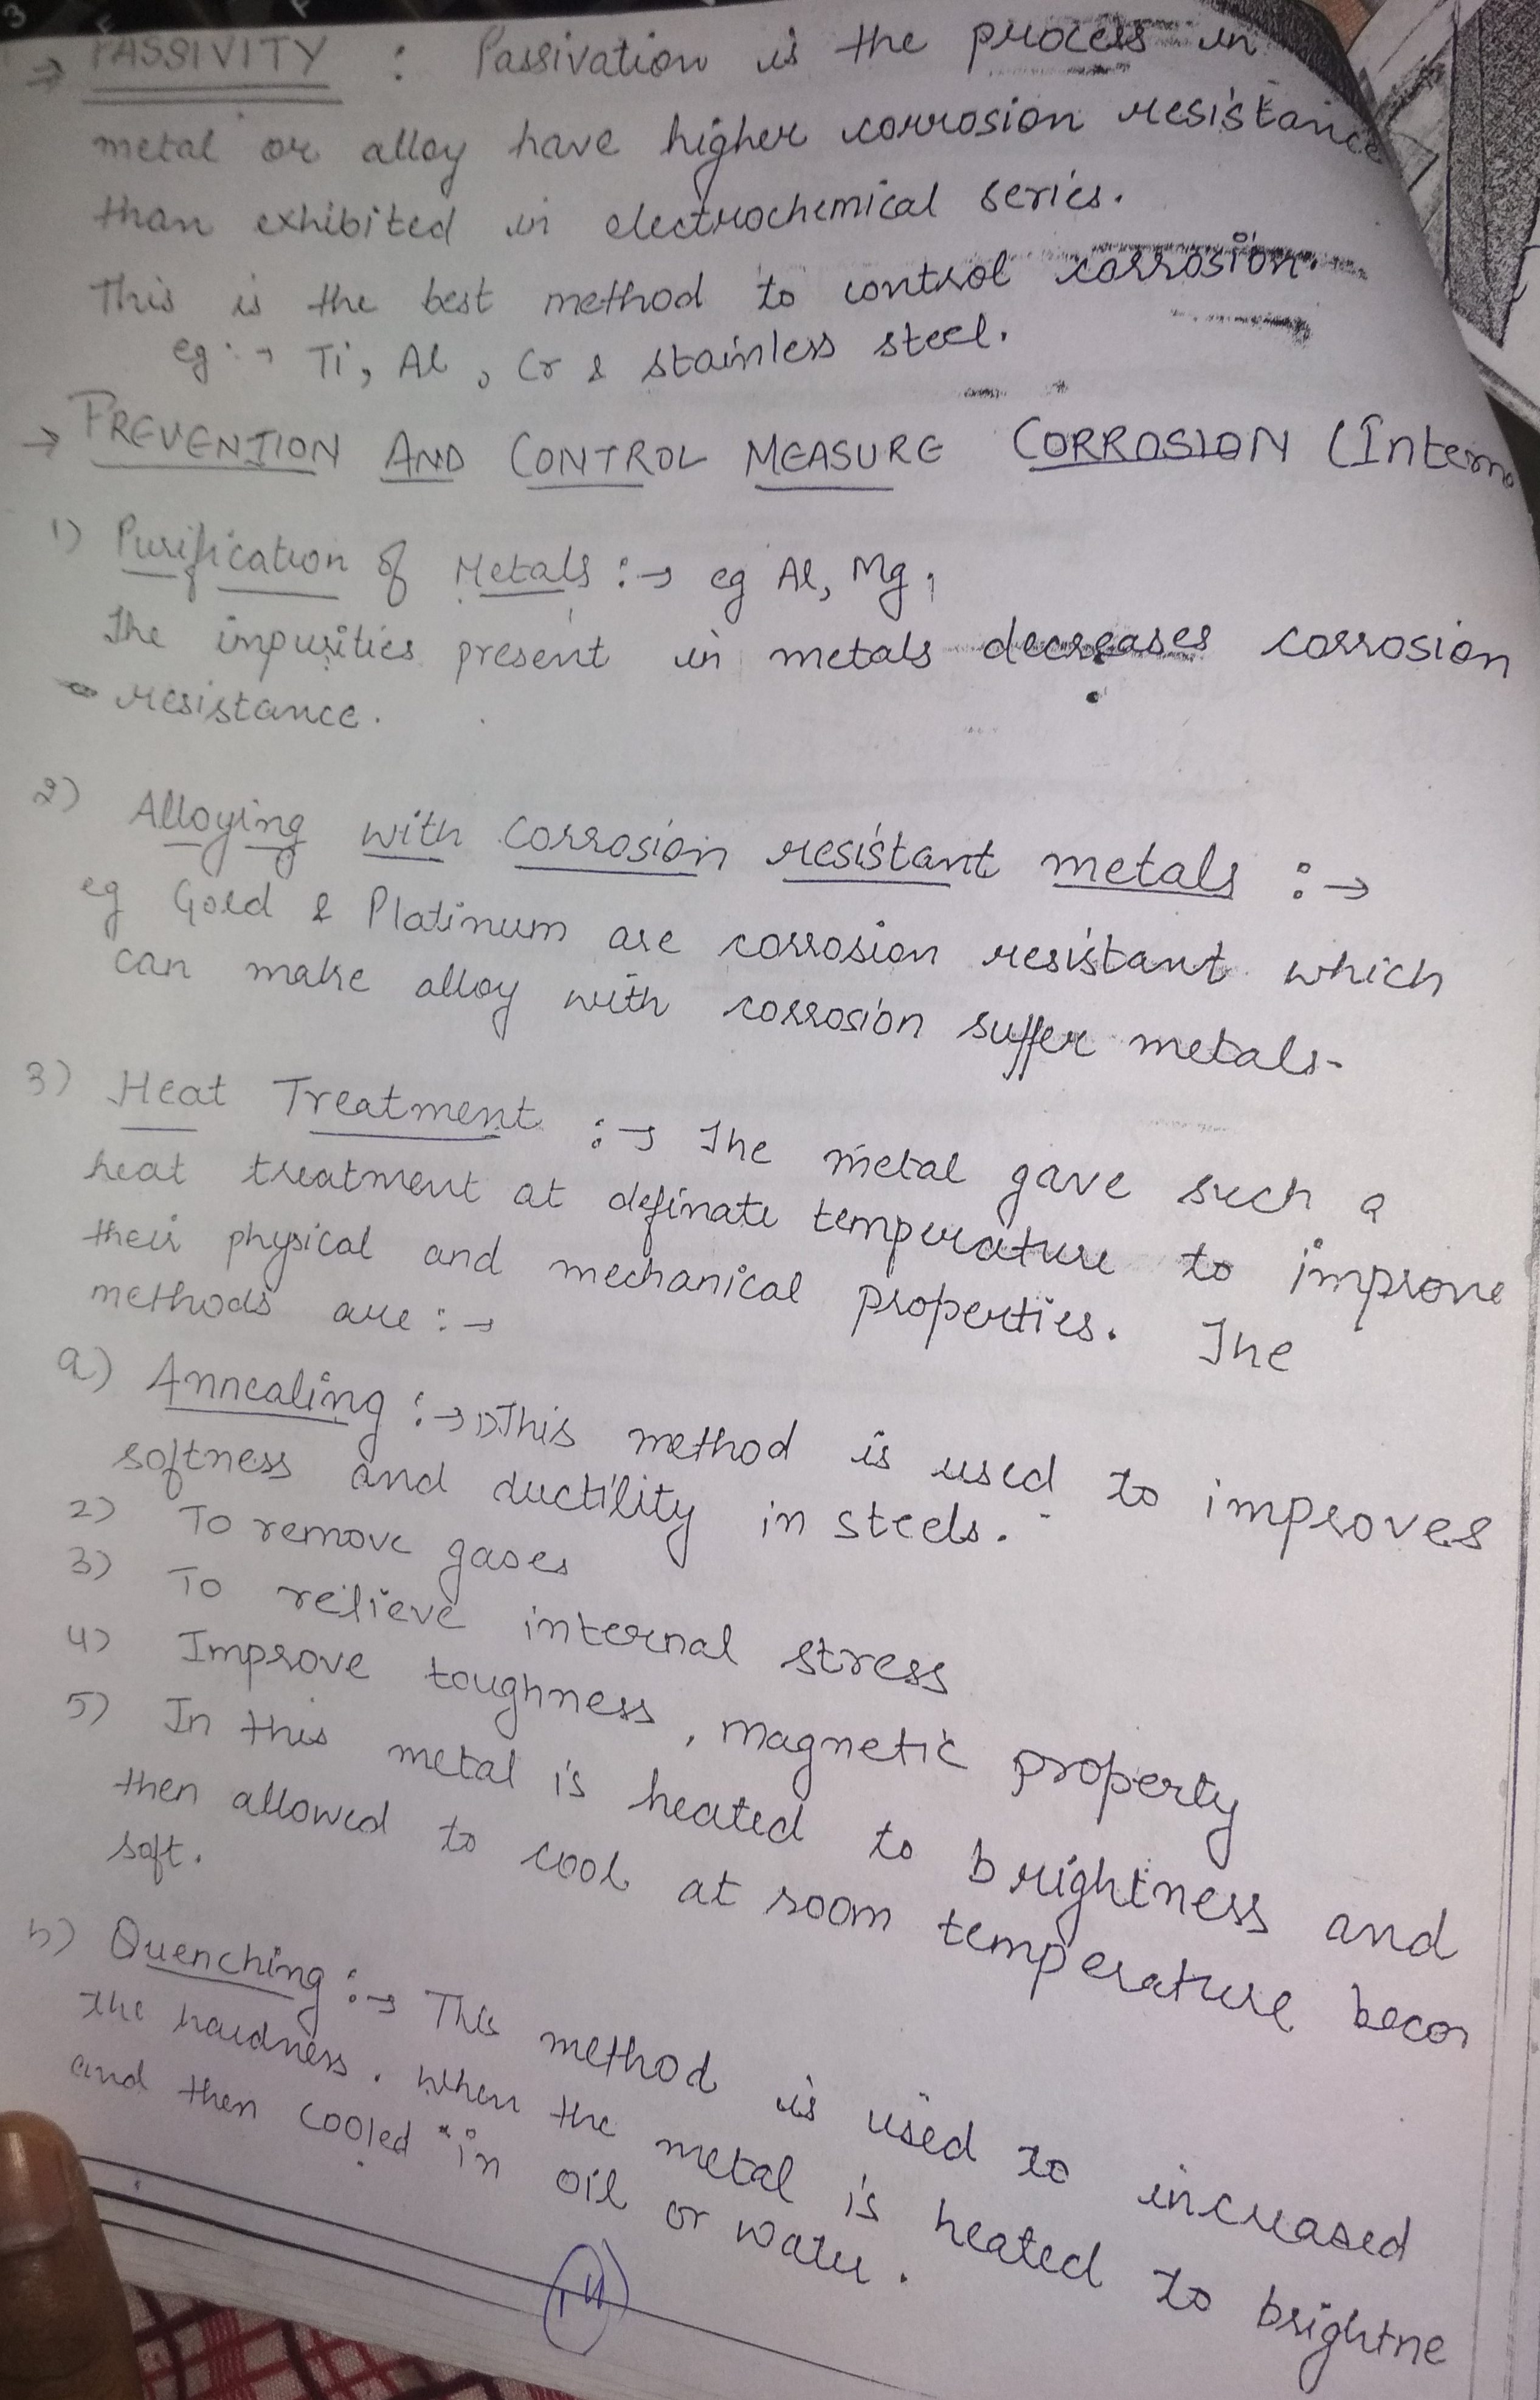 → PASSIVITY : Passivation is the process in
metal or alloy have higher corrosion resistance
than exhibited in electrochemical series.
This is the best method to control corrosion.
eg :→ Ti, Al, Cr & stainless steel.
→ PREVENTION AND CONTROL MEASURE CORROSION (Intern
1) Purification of Metals :→ eg Al, Mg,
The impurities present in metals decreases corrosion
resistance.
2) Alloying with corrosion resistant metals :→
eg Gold & Platinum are corrosion resistant which
can make alloy with corrosion suffer metals.
3) Heat Treatment :→ The metal gave such a
heat treatment at definate temperature to improve
their physical and mechanical properties. The
methods are :→
a) Annealing :→ 1) This method is used to improves
softness and ductility in steels.
2) To remove gases
3) To relieve internal stress
4) Improve toughness, magnetic property
5) In this metal is heated to brightness and
then allowed to cool at room temperature becom
soft.
b) Quenching :→ This method is used to increased
the hardness. When the metal is heated to brightne
and then cooled in oil or water.
14